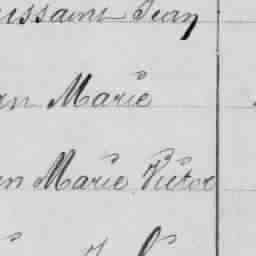 ussaint Jean
an Marie
an Marie Victor